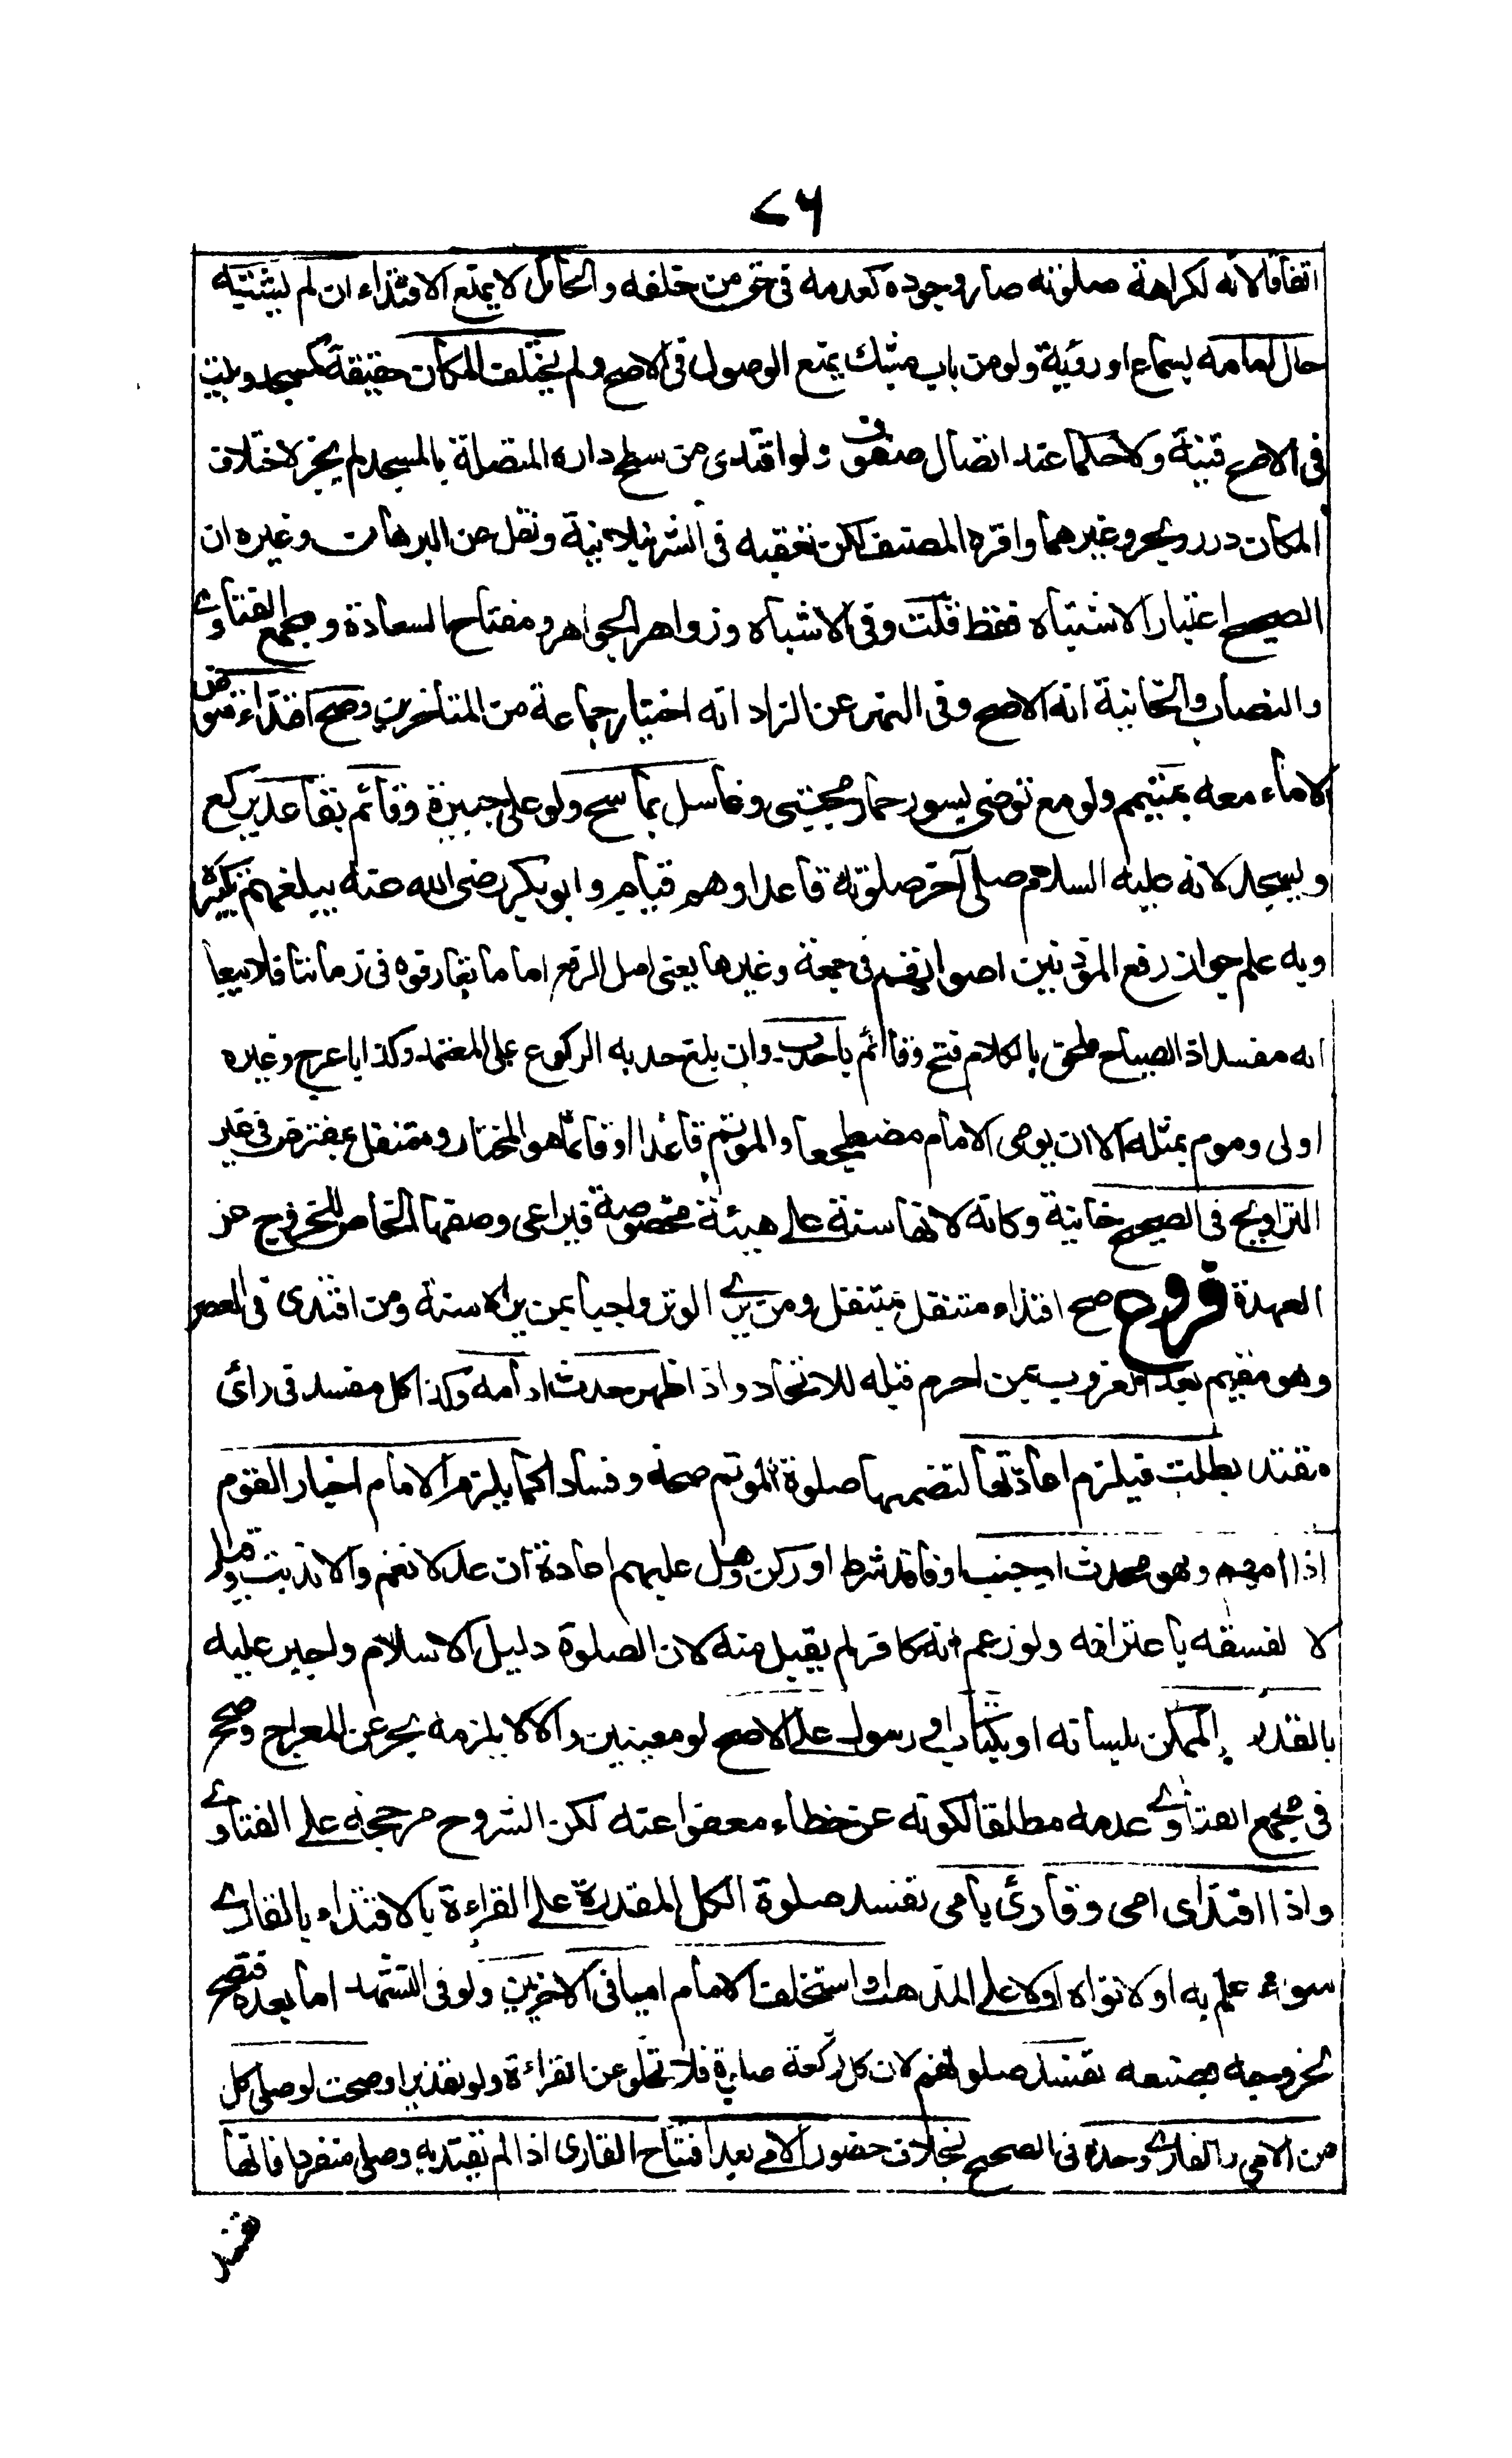 ٧٦
اتفاقا لانه لكراهة صلوته صار وجوده كعدمه فى حق من خلفه والحائل لا يمنع الاقتداء ان لم يشتبه
حال امامه بسماع او رؤية ولو من باب مشبك يمنع الوصول فى الاصح ولم يختلف المكان حقيقة كمسجد وبيت
فى الاصح قنية ولا حكما عند اتصال صفوف ولو اقتدى من سطح داره المتصلة بالمسجد لم يجز لاختلاف
المكان درر وبحر وغيرهما واقره المصنف لكن تعقبه فى الشرنبلالية ونقل عن البرهان وغيره ان
الصحيح اعتبار الاشتباه فقط قلت وفى الاشباه وزواهر الجواهر ومفتاح السعادة ومجمع الفتاوى
والنصاب والخانية انه الاصح وفى النهر عن الزاد انه اختيار جماعة من المتأخرين وصح اقتداء متوضئ
لا ماء معه بمتيمم ولو مع توضى بسور حمار مجتبى وغاسل بماسح ولو على جبيرة وقائم بقاعد يركع
ويسجد لانه عليه السلام صلى آخر صلوته قاعدا وهم قيام وابو بكر رضى الله عنه يبلغهم تكبيره
وبه علم جواز رفع المؤذنين اصواتهم فى جمعة وغيرها يعنى اصل الرفع اما ما تعارفوه فى زماننا فلا يبعد
انه مفسد اذ الصياح ملحق بالكلام فتح وقائم باحدب وان بلغ حدبه الركوع على المعتمد وكذا باعرج وغيره
اولى وموم بمثله الا ان يومى الامام مضطجعا والموتم قاعدا او قائما هو المختار ومتنفل بمفترض فى غير
التراويح فى الصحيح خانية وكانه لانها سنة على هيئة مخصوصة فيراعى وصفها الخاص للخروج عن
العهدة فروع صح اقتداء متنفل بمتنفل ومن يرى الوتر واجبا بمن يراه سنة ومن اقتدى فى العصر
وهو مقيم بعد الغروب بمن احرم قبله للاتحاد واذا ظهر حدث امامه وكذا كل مفسد فى رائ
مقتد بطلت فيلزم اعادتها لتضمنها صلوة الموتم صحة وفسادا كما يلزم الامام اخبار القوم
اذا امهم وهو محدث او جنب او فاقد شرط او ركن وهل عليهم اعادة ان عدلا نعم والا ندبت وقيل
لا لفسقه باعترافه ولو زعم انه كافر لم يقبل منه لان الصلوة دليل الاسلام واجبر عليه
بالقدر الممكن بلسانه او بكتاب او رسول على الاصح لو معينين والا لا يلزمه بحر عن المعراج وصحح
فى مجمع الفتاوى عدمه مطلقا لكونه عن خطاء معفوا عنه لكن الشروح مرجحة على الفتاوى
واذا اقتدى امى وقارئ بامى تفسد صلوة الكل للمقدرة على القراءة بالاقتداء بالقارى
سواء علم به او لا نواه او لا على المذهب او استخلف الامام اميا فى الاخريين ولو فى التشهد اما بعده فتصح
لخروجه بصنعه تفسد صلوتهم لان كل ركعة صلوة فلا تخلو عن القراءة ولو تقديرا وصحت لو صلى كل
من الامى والقارى وحده فى الصحيح بخلاف حضور الامى بعد افتتاح القارى اذا لم يقتد به وصلى منفردا فانها